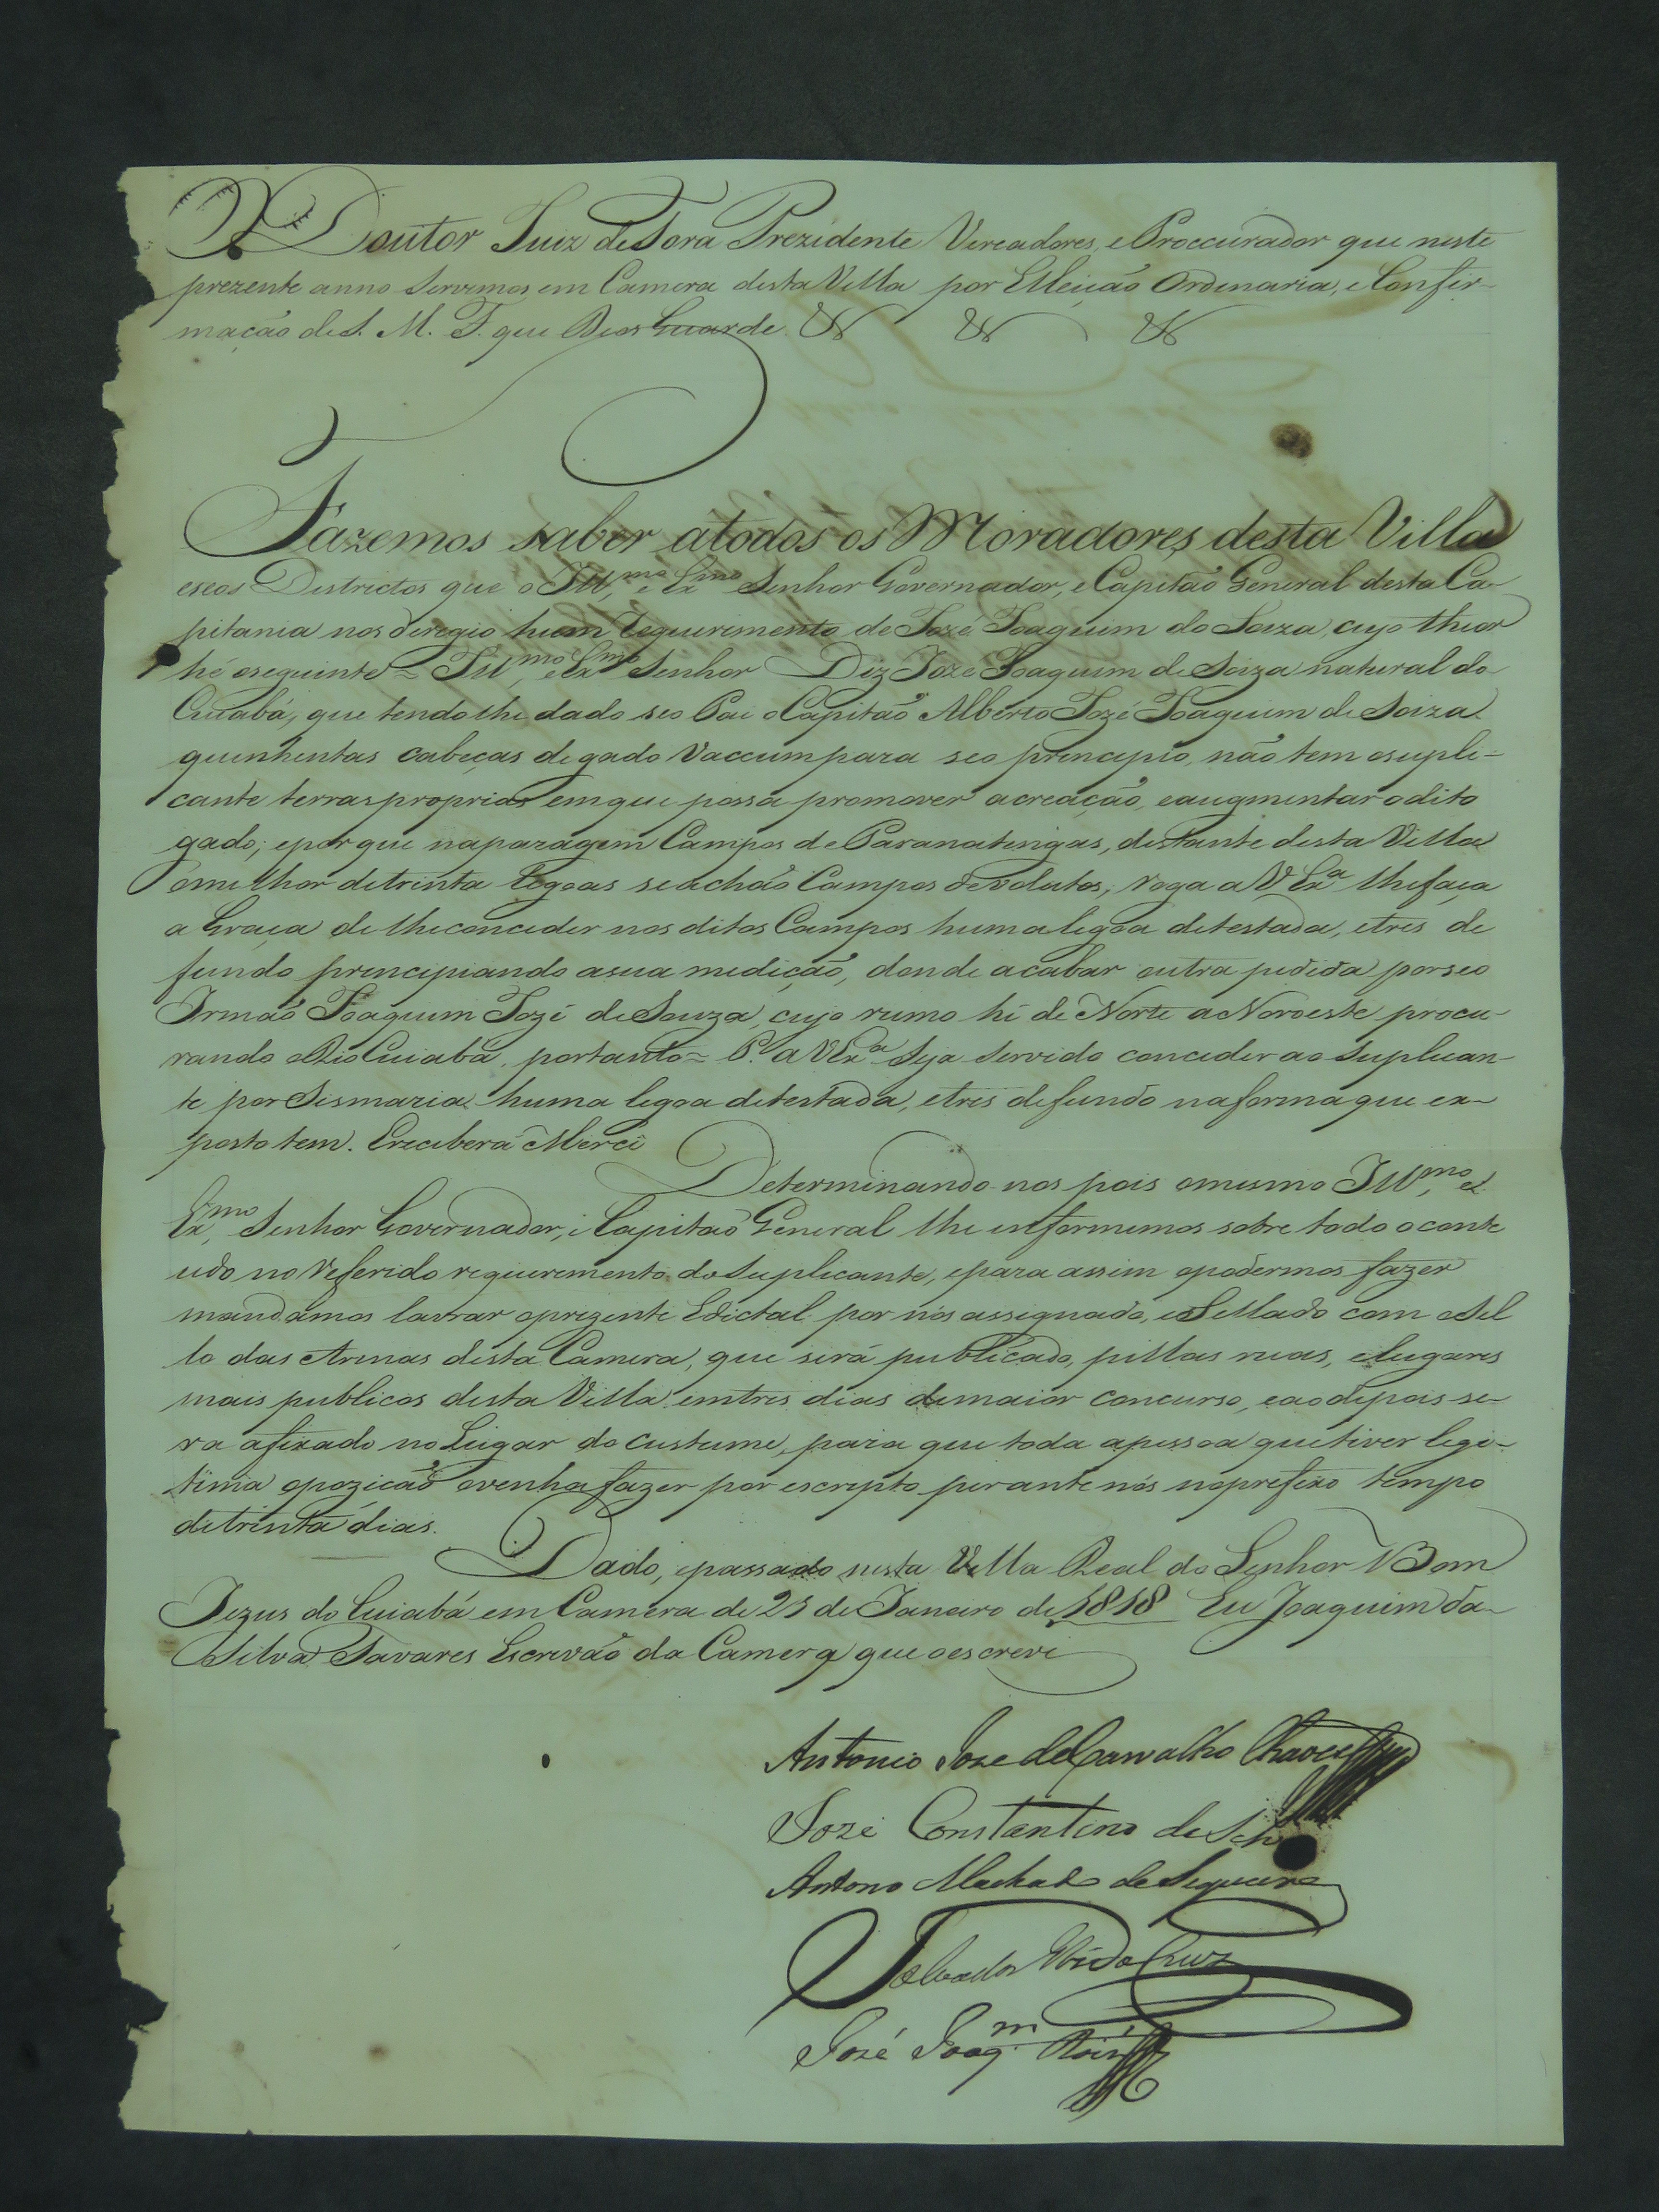 O Doutor Juiz de Fora Prezidente Vereadores, e Proccurador que neste
prezente anno servimos em Camera desta Villa por Elleição Ordinaria, e Confir-
mação de S. M. F. que Deos Guarde.
Fazemos saber átodos os Moradores desta Villa
eseos Districtos que o Ill.mo e Ex.mo Senhor Governador, e Capitão General desta Ca-
pitania nos deregio hum requerimento de Jozé Joaquim de Soiza, cujo theor
hé oseguinte = Ill.mo e Ex.mo Senhor Diz Joze Joaquim de Soiza natural do
Cuiabá, que tendolhe dado seo Pai o Capitão Alberto Jozé Joaquim de Soiza
quinhentas cabeças de gado Vaccum para seo principio, não tem osupli-
cante terras proprias emque possa promover acreação, eaugmentar o dito
gado; eporque naparagem Campos de Paranatingas, distante desta Villa
ómilhor detrinta legoas seachão Campos devolutos, roga a V Ex.a lhefaça
a Graça de lheconceder nos ditos Campos humalegoa detestada, etres de
fundo principiando asua medição, donde acabar outra pedida porseo
Irmão Joaquim Jozé de Souza, cujo rumo hé de Norte a Noroeste procu-
rando o Rio Cuiabá, portanto = P. a V Ex.a Seja servido conceder ao Suplican-
te por Sismaria huma legoa detestada, etres defundo naforma que ex-
posto tem. Ereceberá Mercê
Determinando-nos pois omesmo Ill.mo, e
Ex.mo Senhor Governador, e Capitão General lhe informemos sobre todo o conte
udo no referido requerimento do Suplicante, epara assim opodermos fazer
mandamos lavrar oprezente Edictal por nós assignado, e Sellado com o Sel
lo das Armas desta Camera, que será publicado, pellas ruas, elugares
mais publicos desta Villa emtres dias demaior concurso, eaodepois se-
ra afixado no Lugar do custume, para que toda apessoa quetiver legi-
tima opozicaõ ovenhafazer por escripto perante nós noprefixo tempo
detrinta dias.
Dado, epassado nesta Villa Real do Senhor Bom
Jezus do Cuiabá em Camera de 25 de Janeiro de 1818 Eu Joaquim da
Silva Tavares Escrivão da Camera que oescrevi
Antonio Joze de Carvalho Chaves
Joze Constantino de
Antono Machado de Sequeira
Salvador da Cruz
José Joaq.m